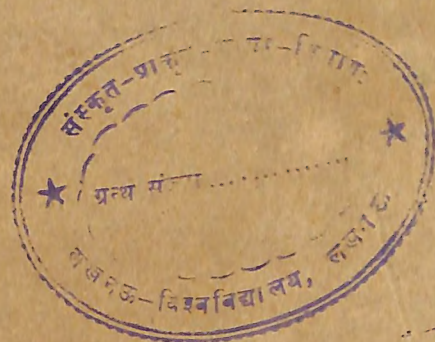 संस्कृत-प्राकृत-भाषा-विभागः
ग्रन्थ संख्या ..................
लखनऊ-विश्वविद्यालय, लखनऊ